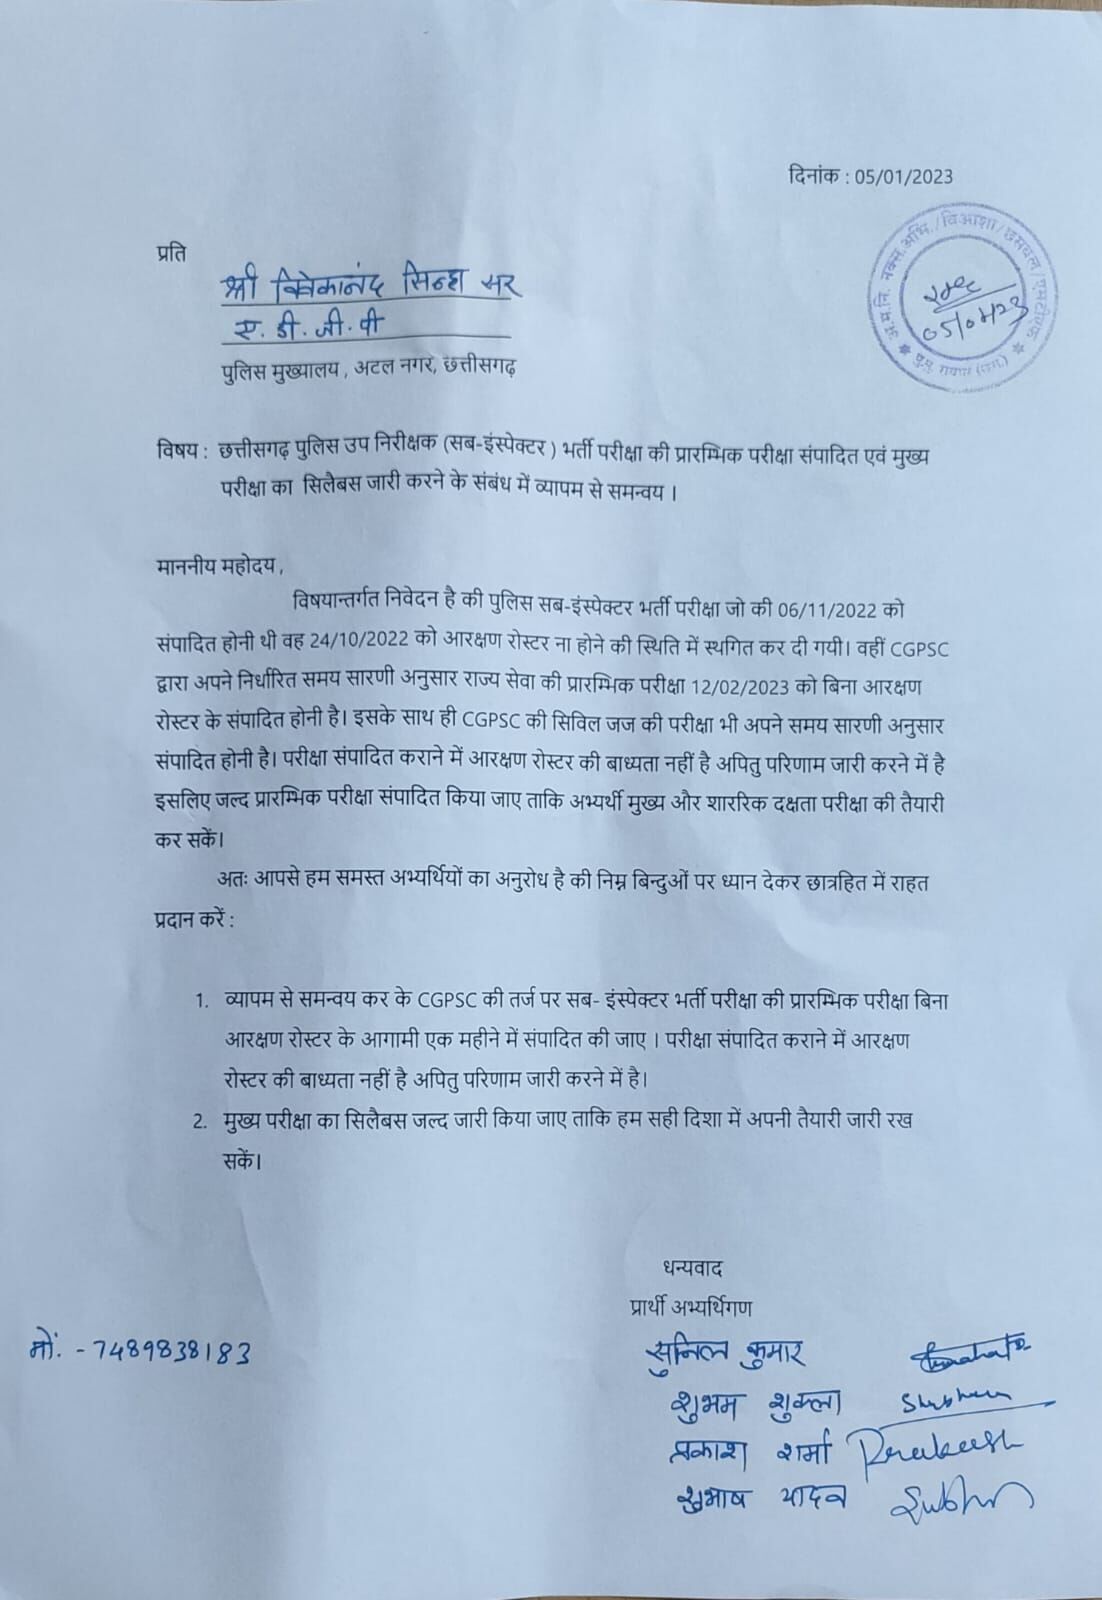 दिनांक : 05/01/2023
प्रति
श्री विवेकानंद सिन्हा सर
ए. डी. जी. पी
पुलिस मुख्यालय , अटल नगर, छत्तीसगढ़
05/01/23
विषय : छत्तीसगढ़ पुलिस उप निरीक्षक (सब-इंस्पेक्टर ) भर्ती परीक्षा की प्रारम्भिक परीक्षा संपादित एवं मुख्य
परीक्षा का सिलैबस जारी करने के संबंध में व्यापम से समन्वय ।
माननीय महोदय ,
विषयान्तर्गत निवेदन है की पुलिस सब-इंस्पेक्टर भर्ती परीक्षा जो की 06/11/2022 को
संपादित होनी थी वह 24/10/2022 को आरक्षण रोस्टर ना होने की स्थिति में स्थगित कर दी गयी। वहीं CGPSC
द्वारा अपने निर्धारित समय सारणी अनुसार राज्य सेवा की प्रारम्भिक परीक्षा 12/02/2023 को बिना आरक्षण
रोस्टर के संपादित होनी है। इसके साथ ही CGPSC की सिविल जज की परीक्षा भी अपने समय सारणी अनुसार
संपादित होनी है। परीक्षा संपादित कराने में आरक्षण रोस्टर की बाध्यता नहीं है अपितु परिणाम जारी करने में है
इसलिए जल्द प्रारम्भिक परीक्षा संपादित किया जाए ताकि अभ्यर्थी मुख्य और शाररिक दक्षता परीक्षा की तैयारी
कर सकें।
अतः आपसे हम समस्त अभ्यर्थियों का अनुरोध है की निम्न बिन्दुओं पर ध्यान देकर छात्रहित में राहत
प्रदान करें :
1. व्यापम से समन्वय कर के CGPSC की तर्ज पर सब- इंस्पेक्टर भर्ती परीक्षा की प्रारम्भिक परीक्षा बिना
आरक्षण रोस्टर के आगामी एक महीने में संपादित की जाए । परीक्षा संपादित कराने में आरक्षण
रोस्टर की बाध्यता नहीं है अपितु परिणाम जारी करने में है।
2. मुख्य परीक्षा का सिलैबस जल्द जारी किया जाए ताकि हम सही दिशा में अपनी तैयारी जारी रख
सकें।
धन्यवाद
प्रार्थी अभ्यर्थिगण
मों. - 7489838183
सुनिल कुमार
शुभम शुक्ला Shubham
प्रकाश शर्मा Prakash
सुभाष यादव